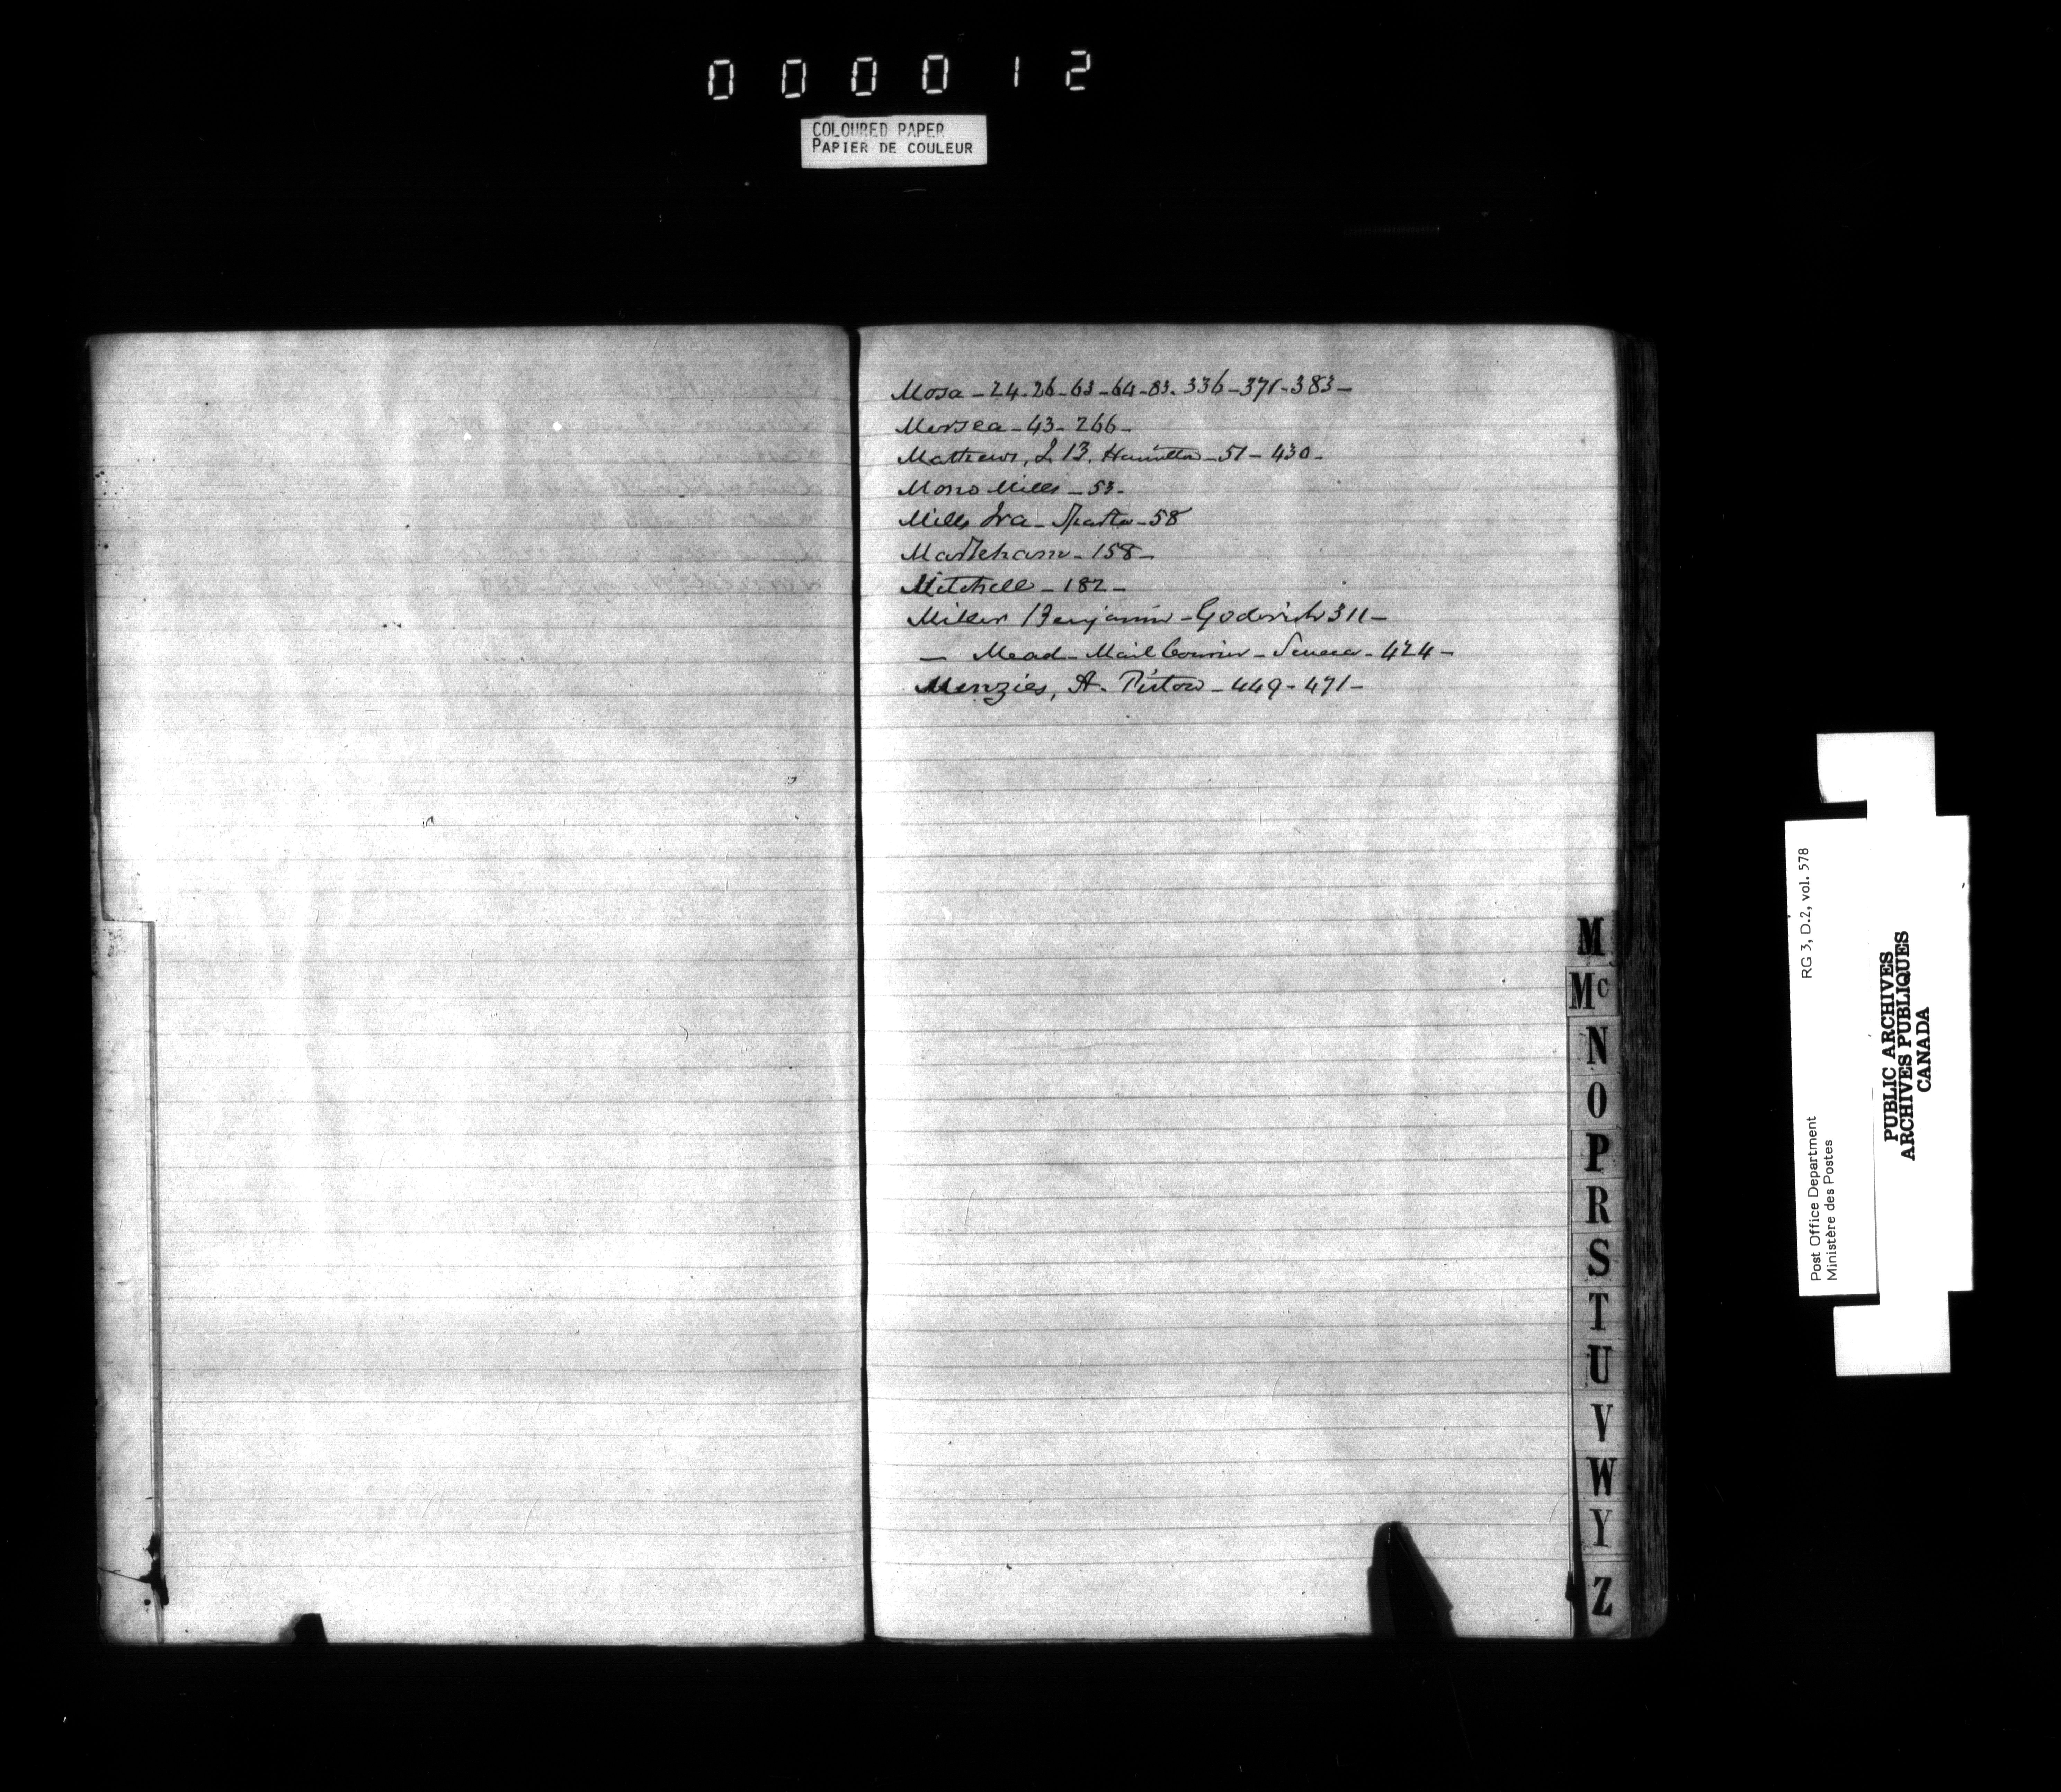 000012
COLOURED PAPER
PAPIER DE COULEUR
Mosa - 24. 26 - 63 - 64 - 83. 336 - 371 - 383 -
Mersea - 43 - 266 -
Mathews, J. B. Hamilton - 51 - 430 -
Mono Mills - 53 -
Mills Ira - Sparta - 58
Markham - 158 -
Mitchell - 182 -
Miller Benjamin - Goderich 311 -
— Mead - Mail Courier - Seneca - 424 -
Menzies, A. Picton - 449 - 471 -
M
Mc
N
O
P
R
S
T
U
V
W
Y
Z
Post Office Department RG 3, D.2, vol. 578
Ministère des Postes
PUBLIC ARCHIVES
ARCHIVES PUBLIQUES
CANADA